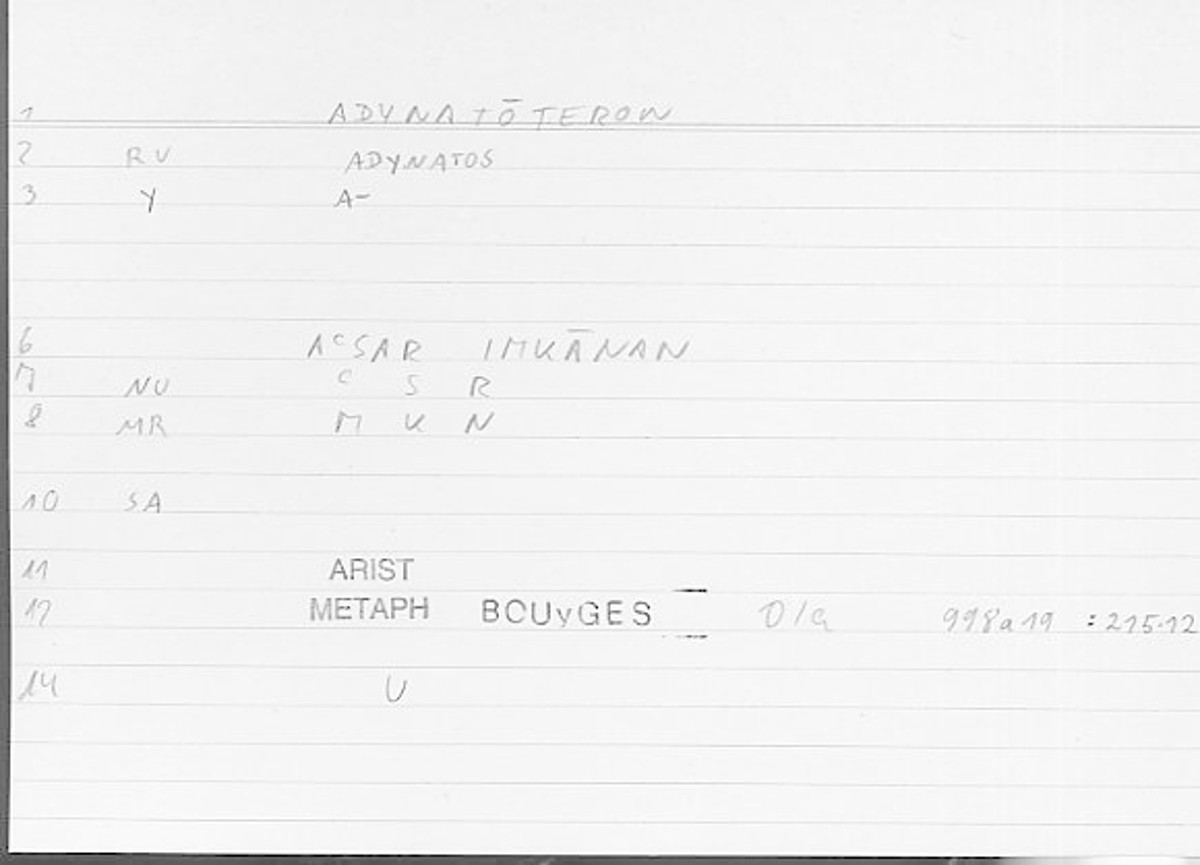 1 ADYNATŌTERON
2 RV ADYNATOS
3 Y A-
6 AᶜSAR IMKĀNAN
7 NU ᶜ S R
8 MR M K N
10 SA
11 ARIST
12 METAPH BOUyGES O/a 998a19 :215.12
14 U